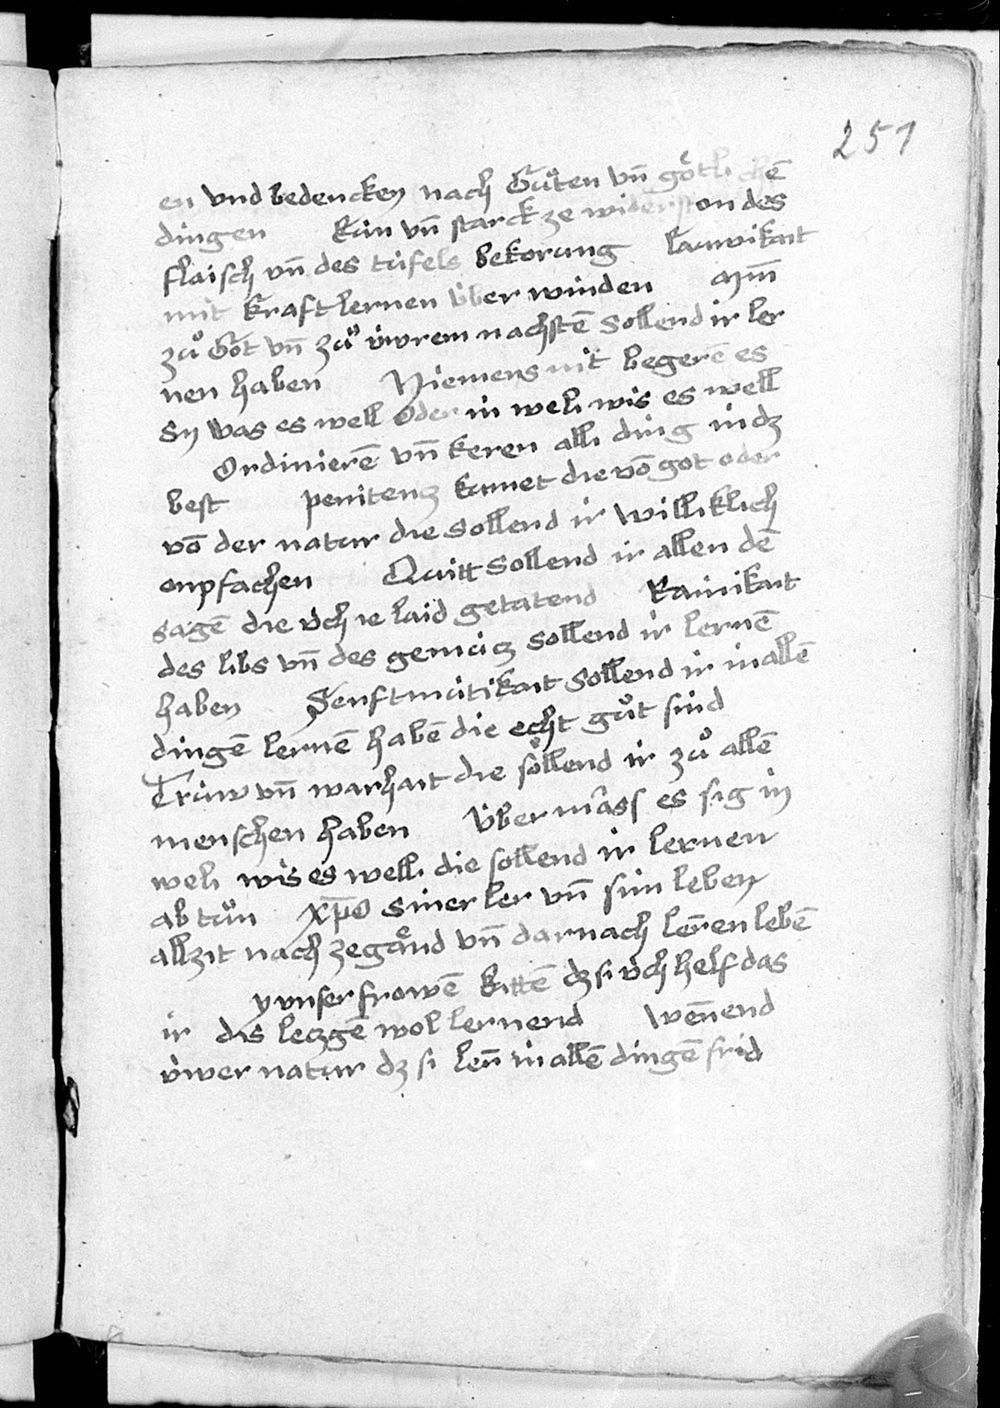 251
en vnd bedencken nach Gůten vn̄ gᷝötlichē
dingen Kün vn̄ starck ze widerston des
flaisch vn̄ des tüfels bekorung lawikait
mit kraft lernen über winden mīn
zů Got vn̄ zů üwrem nachstē Sollend ir ler
nen haben Niemens nit begerē es
Sy was es well oder in weli wis es well
Ordinierē vn̄ keren alli ding in dz
best penitenz kumet die vō got oder
vō der natur die Sollend ir williklich
enpfachen Quitt Sollend ir allen dē
sagē die üch ie laid getatend Rainikait
des libs vn̄ des gemütz Sollend ir lernē
haben Senftmütikait Sollend ir in allē
dingē lernē habē die echt gůt sind
Trüw vn̄ warhait die söllend ir zů allē
menschen haben Über mâss es sig in
weli wis es welli die sollend ir lernen
ab tůn xp̄o Siner ler vn̄ sim leben
allzit nach zegänd vn̄ darnach lērenlebē
vnser frowē bittē dz si üch helf das
ir dis letzgē wol lernend Wēnend
üwer natur dz si len̄ in allē dingē frid